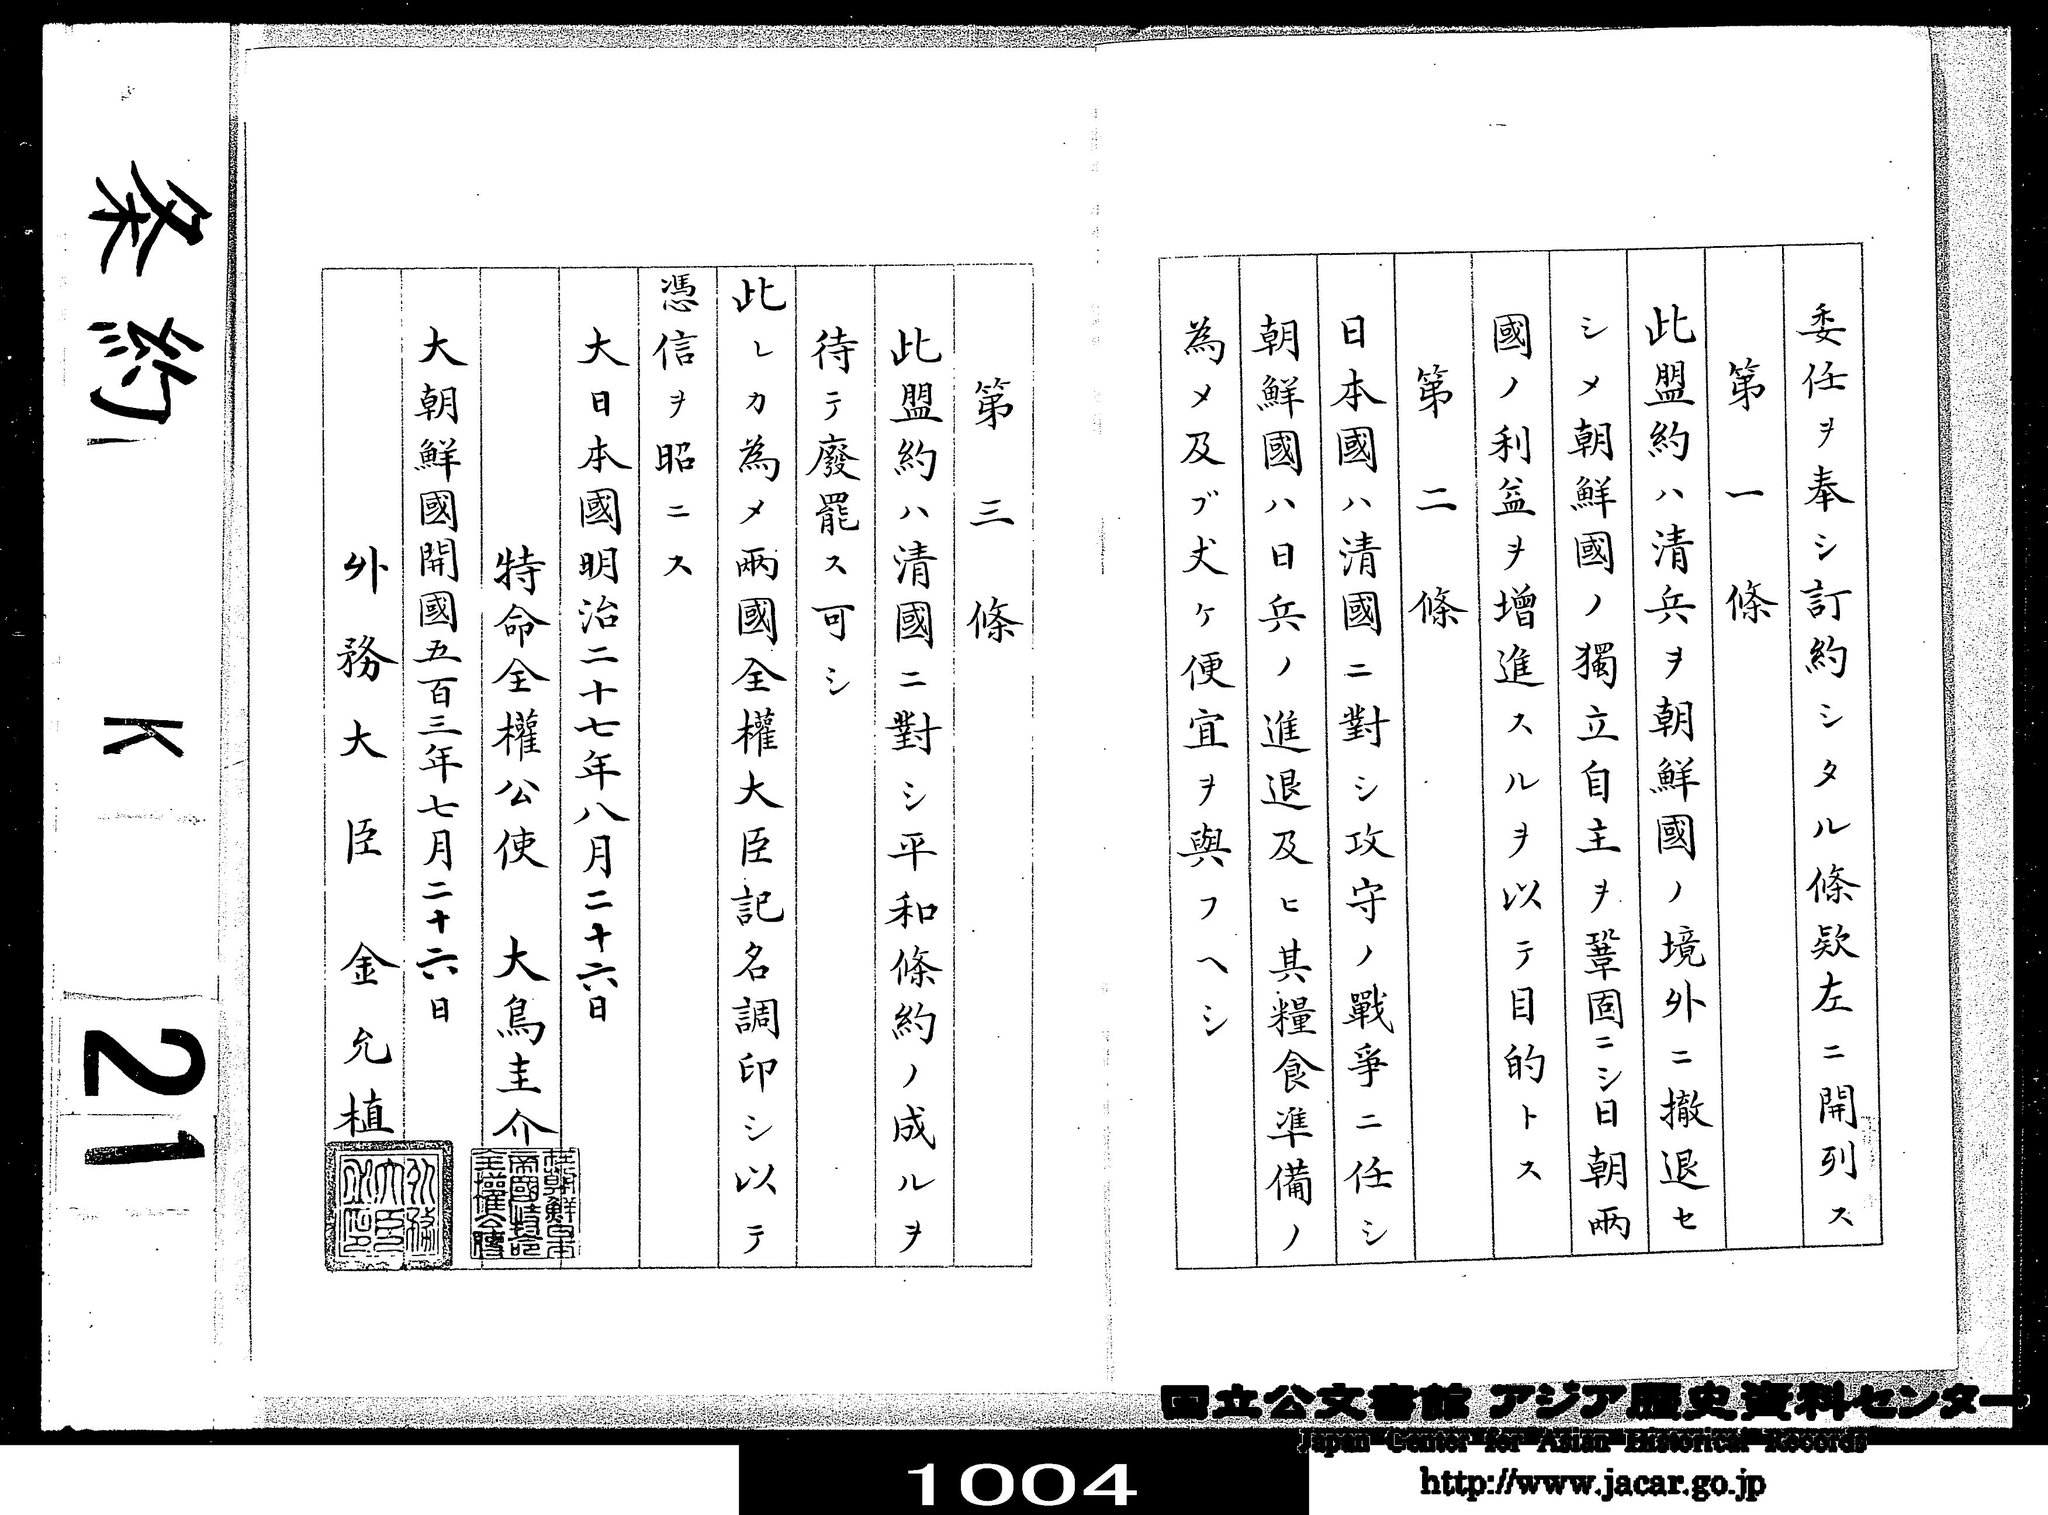 委任ヲ奉シ訂約シタル條欵左ニ開列ス
第一條
此盟約ハ清兵ヲ朝鮮國ノ境外ニ撤退セ
シメ朝鮮國ノ獨立自主ヲ鞏固ニシ日朝兩
國ノ利益ヲ增進スルヲ以テ目的トス
第二條
日本國ハ清國ニ對シ攻守ノ戰爭ニ任シ
朝鮮國ハ日兵ノ進退及ヒ其糧食準備ノ
為メ及ブ丈ケ便宜ヲ與フヘシ
第三條
此盟約ハ清國ニ對シ平和條約ノ成ルヲ
待テ廢罷ス可シ
此レカ為メ兩國全權大臣記名調印シ以テ
憑信ヲ昭ニス
大日本國明治二十七年八月二十六日
特命全權公使 大鳥圭介
大朝鮮國開國五百三年七月二十六日
外務大臣金允植
在朝鮮日本
帝國特命
全權公使
外務
大臣
之印
条約
K
21
国立公文書館 アジア歴史資料センター
Japan Center for Asian Historical Records
http://www.jacar.go.jp
1004